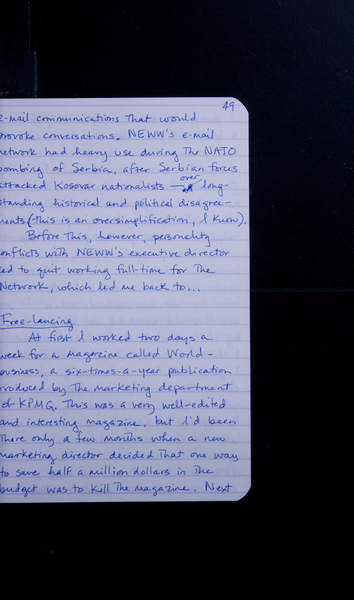 49
e-mail communications that would
provoke conversations. NEWW's e-mail
network had heavy use during the NATO
bombing of Serbia, after Serbian forces
attacked Kosovar nationalists over long-
standing historical and political disagree-
ments (this is an oversimplification, I know).
Before this, however, personality
conflicts with NEWW's executive director
led to quit working full-time for the
Network, which led me back to...
Free-lancing
At first I worked two days a
week for a magazine called World-
business, a six-times-a-year publication
produced by the marketing department
of KPMG. This was a very well-edited
and interesting magazine, but I'd been
there only a few months when a new
marketing director decided that one way
to save half a million dollars in the
budget was to kill the magazine. Next